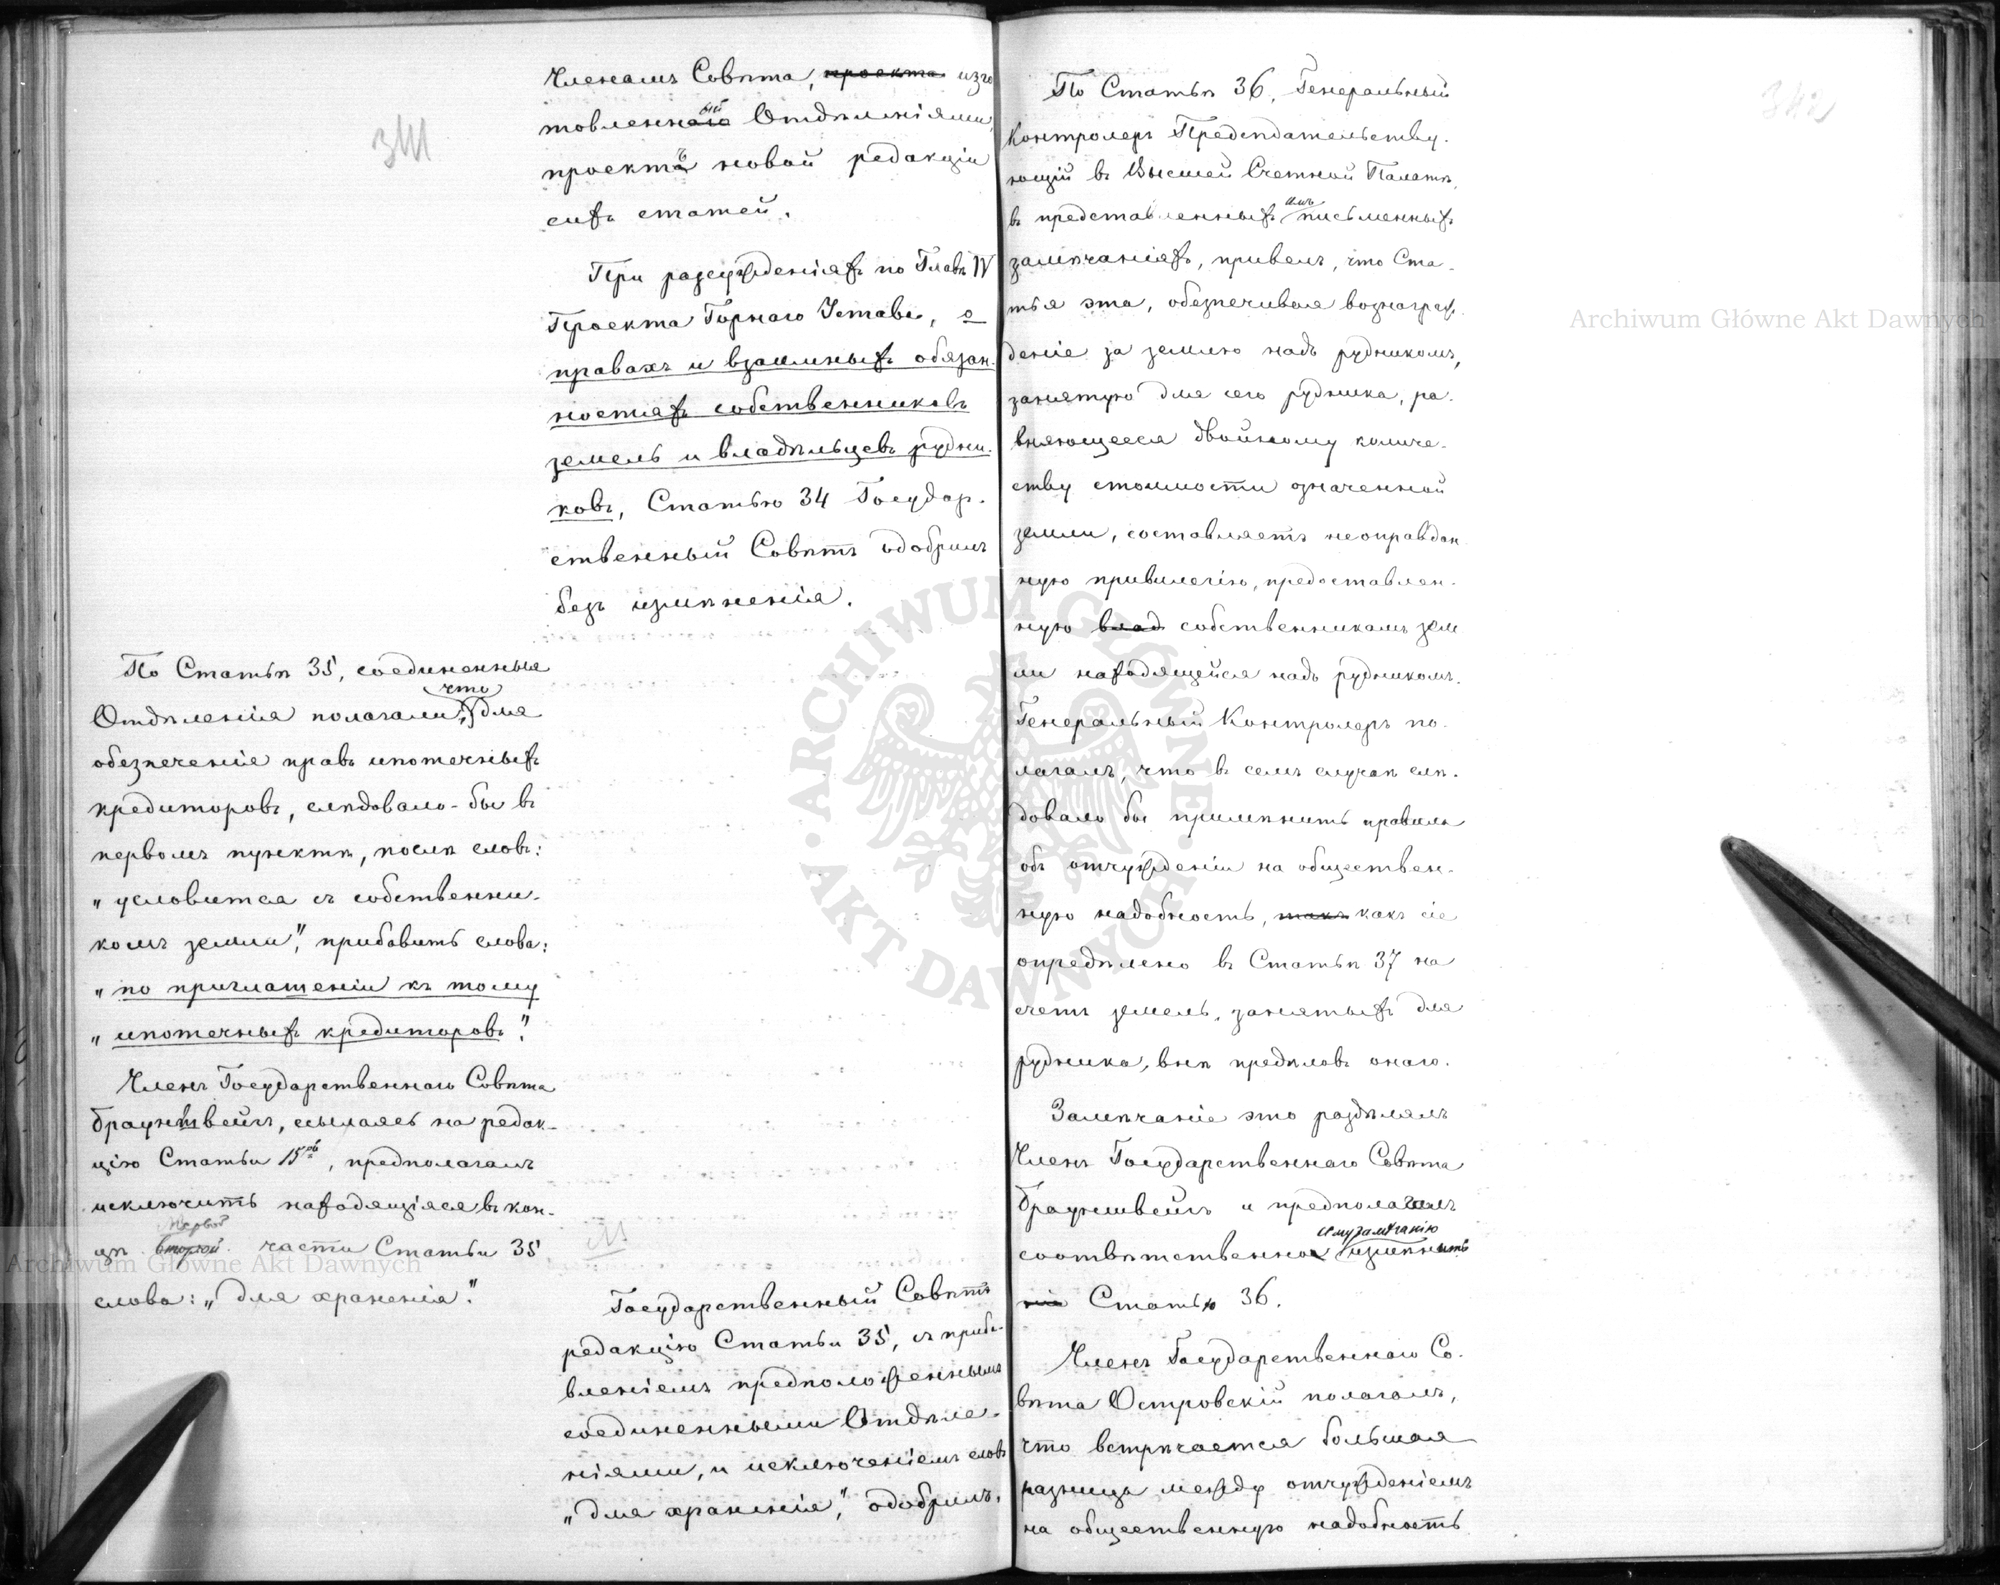 311
Членамъ Совѣта, проекта изго
товленный Отдѣленіями,
проектъ новой редакціи
сихъ статей.
При разсужденіяхъ по Главѣ IV
Проекта Горнаго Устава, о
правахъ и взаимныхъ обязан-
ностяхъ собственниковъ
земель и владѣльцевъ рудни-
ковъ, Статью 34 Государ-
ственный Совѣтъ одобрилъ
безъ измѣненія.
По Статьѣ 35, соединенныя
что
Отдѣленія полагали, для
обезпеченія правъ ипотечныхъ
кредиторовъ, слѣдовало-бы въ
первомъ пунктѣ, послѣ словъ:
„условится съ собственни-
комъ земли", прибавить слова:
„по приглашеніи къ тому
„ипотечныхъ кредиторовъ".
Членъ Государственнаго Совѣта
Брауншвейгъ, ссылаясь на редак-
цію Статьи 15ой, предполагалъ
исключить находящіяся въ кон-
первой
цѣ второй части Статьи 35
слова: „для храненія".
Государственный Совѣтъ
редакцію Статьи 35, съ приба-
вленіемъ предположеннымъ
соединенными Отдѣле-
ніями, и исключеніемъ словъ
„для храненія", одобрилъ.
312
По Статьѣ 36, Генеральный
Контролеръ Предсѣдательству-
ющій въ Высшей Счетной Палатѣ,
имъ
въ представленныхъ письменныхъ
замѣчаніяхъ, привелъ, что Ста-
тья эта, обезпечивая вознаграж-
деніе за землю надъ рудникомъ,
занятую для сего рудника, ра-
вняющееся двойному количе-
ству стоимости означенной
земли, составляетъ неоправдан
ную привилегію, предоставлен-
ную влад собственникамъ зем
ли находящейся надъ рудникомъ.
Генеральный Контролеръ по-
лагалъ, что въ семъ случаѣ слѣ-
довало бы примѣнить правила
объ отчужденіи на обществен-
ную надобность, такъ какъ сіе
опредѣлено въ Статьѣ 37 на
счетъ земель, занятыхъ для
рудника, внѣ предѣловъ онаго.
Замѣчаніе это раздѣлялъ
Членъ Государственнаго Совѣта
Брауншвейгъ и предполагалъ
сему замѣчанію
соотвѣтственно измѣнить
нія Статью 36.
Членъ Государственнаго Со-
вѣта Островскій полагалъ,
что встрѣчается большая
разница между отчужденіемъ
на общественную надобность
Archiwum Główne Akt Dawnych
Archiwum Główne Akt Dawnych
ARCHIWUM GŁÓWNE AKT DAWNYCH